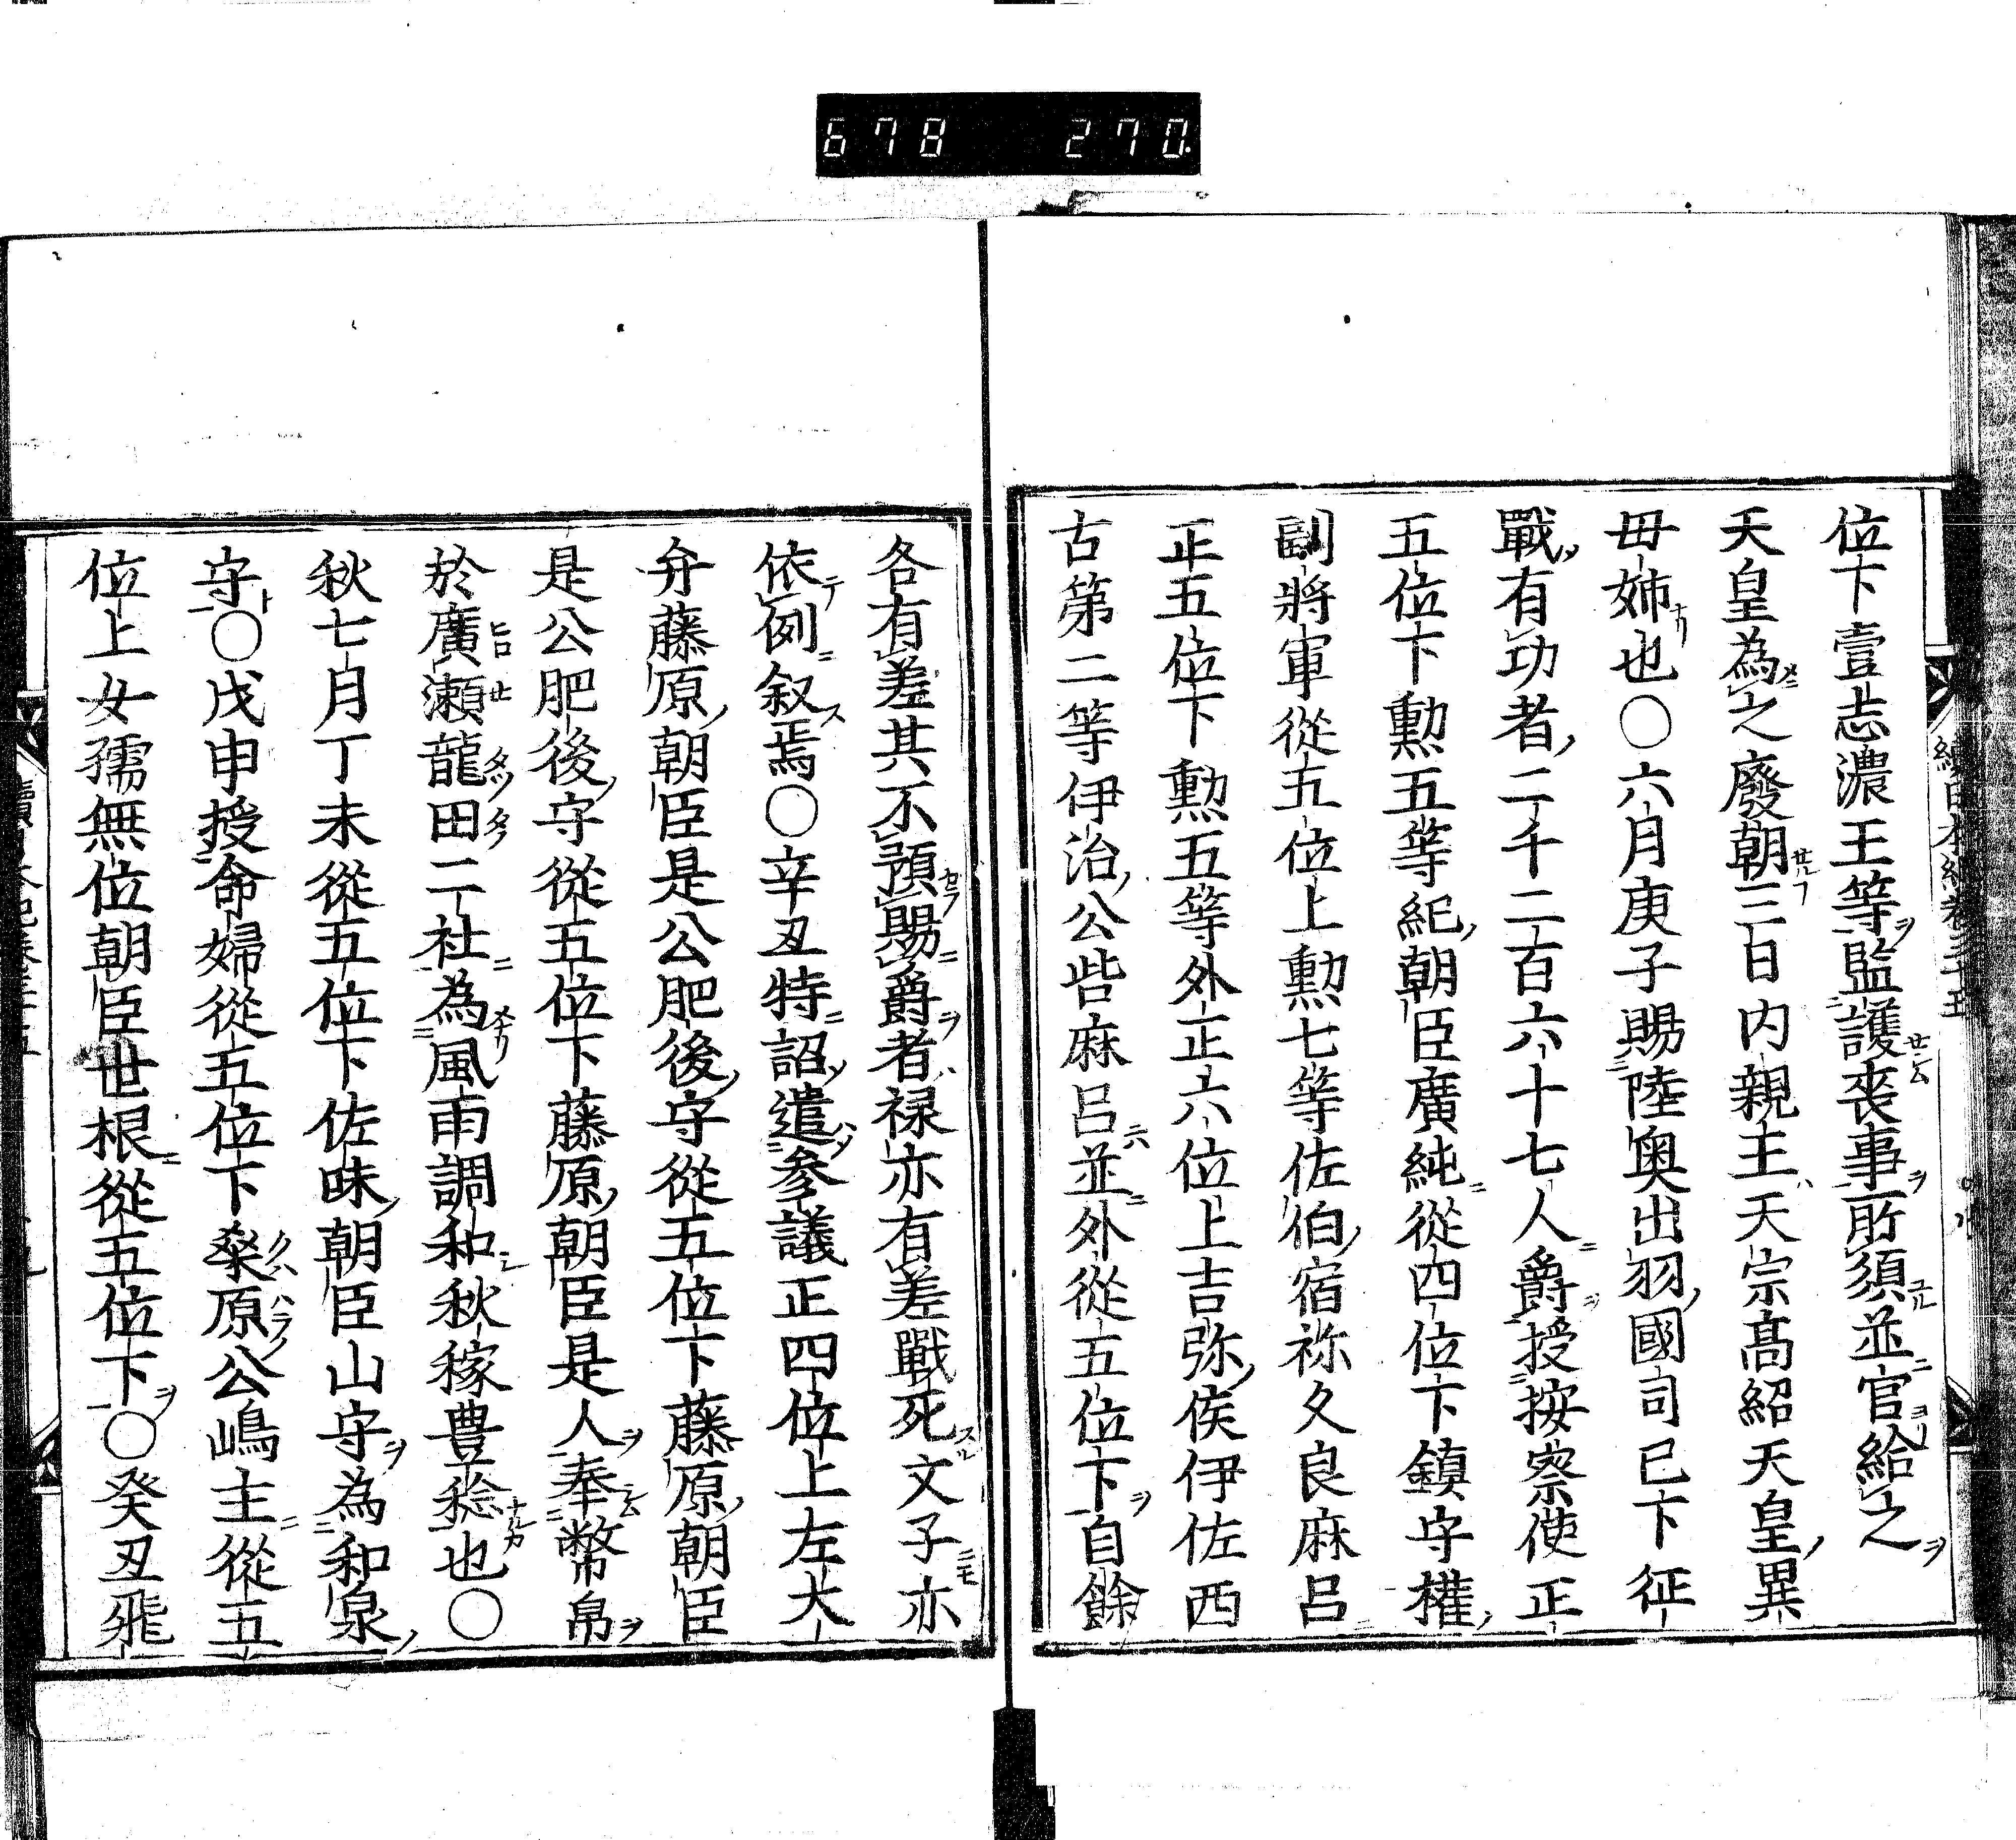 678 270
位下壹志濃王等監護喪事所須並官給之
天皇為之廢朝三日内親王天宗髙紹天皇異
母姉也〇六月庚子賜陸奥出羽國司已下征
戰有功者二千二百六十七人爵授按察使正
五位下勲五等紀朝臣廣純從四位下鎮守權
副將軍從五位上勲七等佐伯宿祢久良麻呂
正五位下勲五等外正六位上吉弥侯伊佐西
古第二等伊治公呰麻呂並外從五位下自餘
各有差其不預賜爵者禄亦有差戰死文子亦
依例叙焉〇辛丑特詔遣参議正四位上左大
弁藤原朝臣是公肥後守從五位下藤原朝臣
是公肥後守從五位下藤原朝臣是人奉幣帛
於廣瀬龍田二社為風雨調和秋稼豊稔也〇
秋七月丁未從五位下佐味朝臣山守為和泉
守〇戊申授命婦從五位下桑原公嶋主從五
位上女孺無位朝臣世根從五位下〇癸丑飛